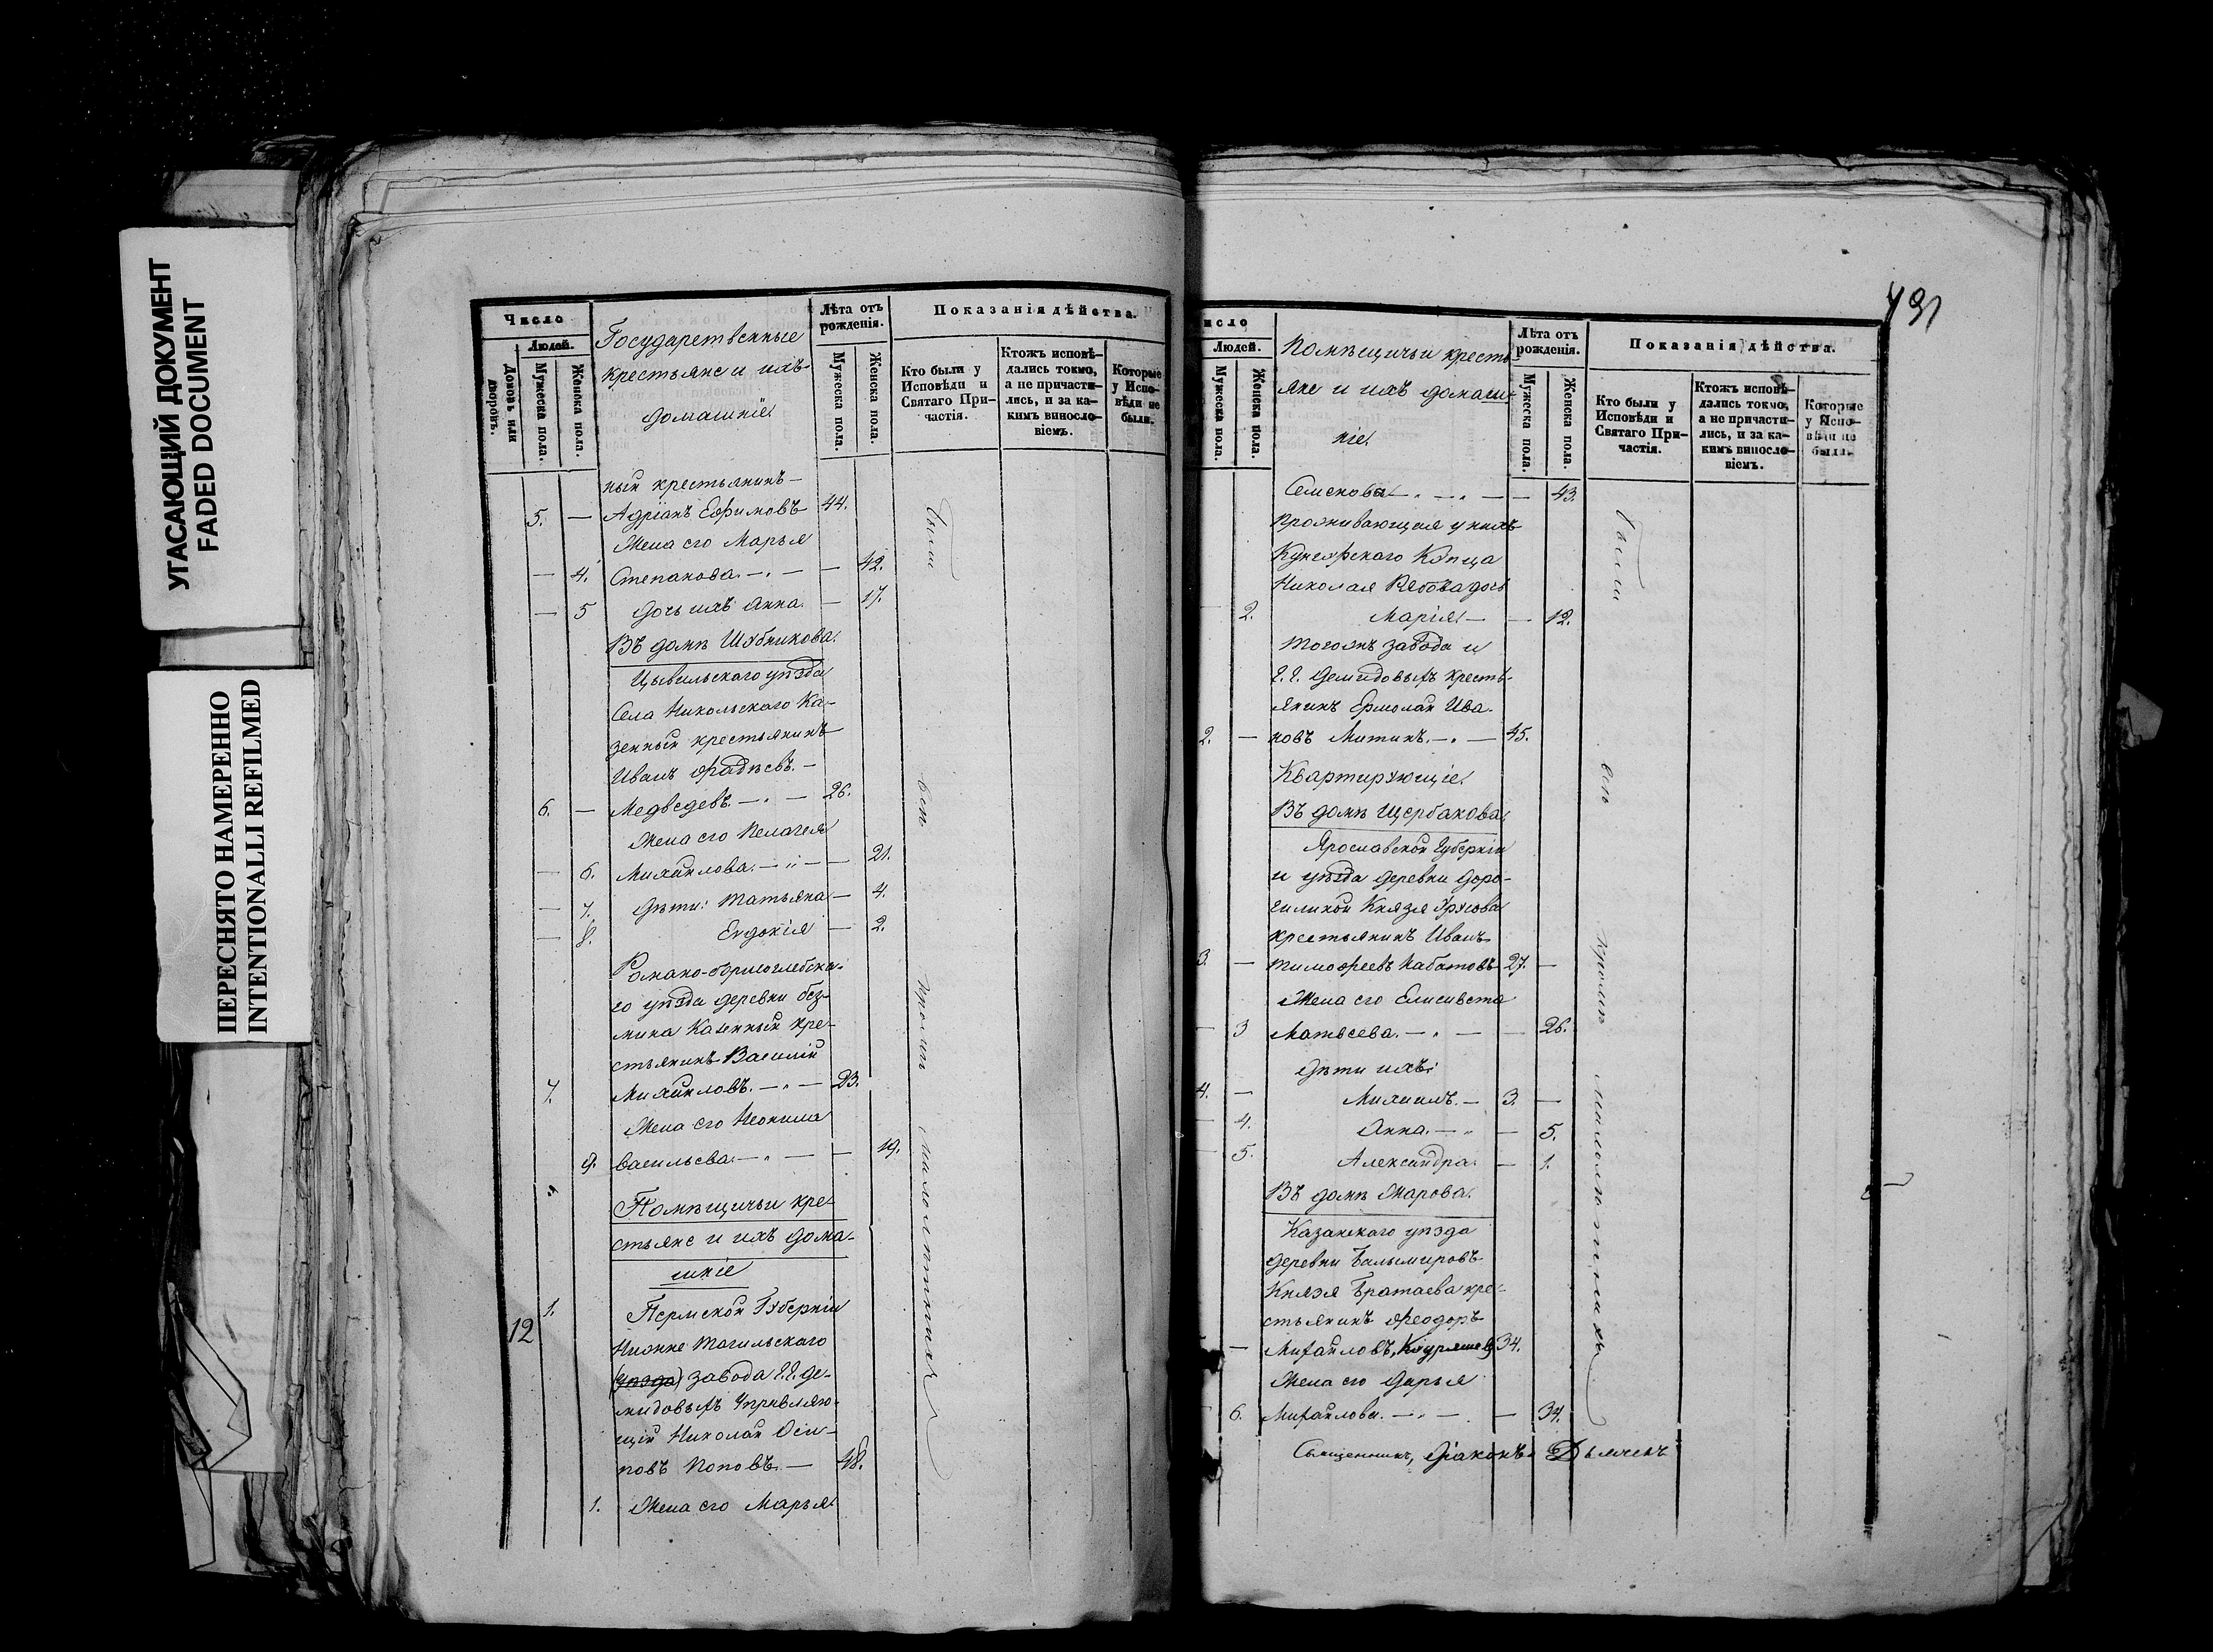 УГАСАЮЩИЙ ДОКУМЕНТ
FADED DOCUMENT
ПЕРЕСНЯТО НАМЕРЕННО
INTENTIONALLI REFILMED
Число
Людей.
Домовъ или дворовъ.
Мужеска пола.
Женска пола.
Государственные
крестьяне и ихъ
домашніе
Лѣта отъ рожденія.
Мужеска пола.
Женска пола.
Показанія дѣйства.
Кто были у Исповѣди и Святаго Причастія.
Ктожъ исповѣдались токмо, а не причастились, и за какимъ винословіемъ.
Которые у Исповѣди не были.
ный крестьянинъ —
5. — Адріанъ Ефимовъ 44.
Жена его Марья
— 4. Степанова. — „ — — 42.
— 5 Дочь ихъ Анна. — 17.
Въ домѣ Шубникова.
Цывильскаго уѣзда
Села Никольскаго Ка-
зенный крестьянинъ
Иванъ Фадѣевъ. —
6. — Медведевъ. — „ — 26.
Жена его Пелагея
— 6. Михайлова. — „ — — 21.
— 7. Дѣти: Татьяна — 4.
— 8. Евдокія — 2.
Романо-Борисоглебска-
го уѣзда деревни Без-
мина Казенный кре-
стьянинъ Василій
7. Михайловъ. — „ — 23.
Жена его Неонила
9. Васильева. — „ — — 19.
Помѣщичьи кре-
стьяне и ихъ дома-
шніе
12 1. Пермской Губерніи
Нижне Тагильскаго
(уѣзда) завода Г.Г. Де-
мидовыхъ Управляю-
щій Николай Оси-
повъ Поповъ. — 48.
1. Жена его Марья
были всѣ кромѣ малолѣтнихъ
491
исло
Людей.
Мужеска пола.
Женска пола.
Помѣщичьи кресть-
яне и ихъ домаш-
ніе
Лѣта отъ рожденія.
Мужеска пола.
Женска пола.
Показанія дѣйства.
Кто были у Исповѣди и Святаго Причастія.
Ктожъ исповѣдались токмо, а не причастились, и за какимъ винословіемъ.
Которые у Исповѣди не были.
Семенова — „ — — 43.
Проживающая у нихъ
Кунгурскаго Купца
Николая Рябова дочь
2. Марія — — 12.
Тогожъ завода и
Г.Г. Демидовыхъ кресть-
янинъ Ермолай Ива-
2. — новъ Митинъ. — „ — 45.
Квартирующіе
Въ домѣ Щербакова
Ярославской Губерніи
и уѣзда деревни Доро-
Князя Урусова
крестьянинъ Иванъ
3. — Тимофеевъ Набатовъ 27. —
Жена его Елисивета
— 3 Матвеева. — „ — — 26.
Дѣти ихъ:
4. — Михаилъ. — 3. —
— 4. Анна. — „ — 5.
— 5. Александра. — 1.
Въ домѣ Жарова.
Казанскаго уѣзда
деревни Балымировъ
Князя Братаева кре-
стьянинъ Феодоръ
— Михайловъ, 34.
Жена его Дарья
6. Михайлова. — „ — — 34.
Священникъ, Діаконъ Дьячекъ
были всѣ кромѣ малолѣтнихъ